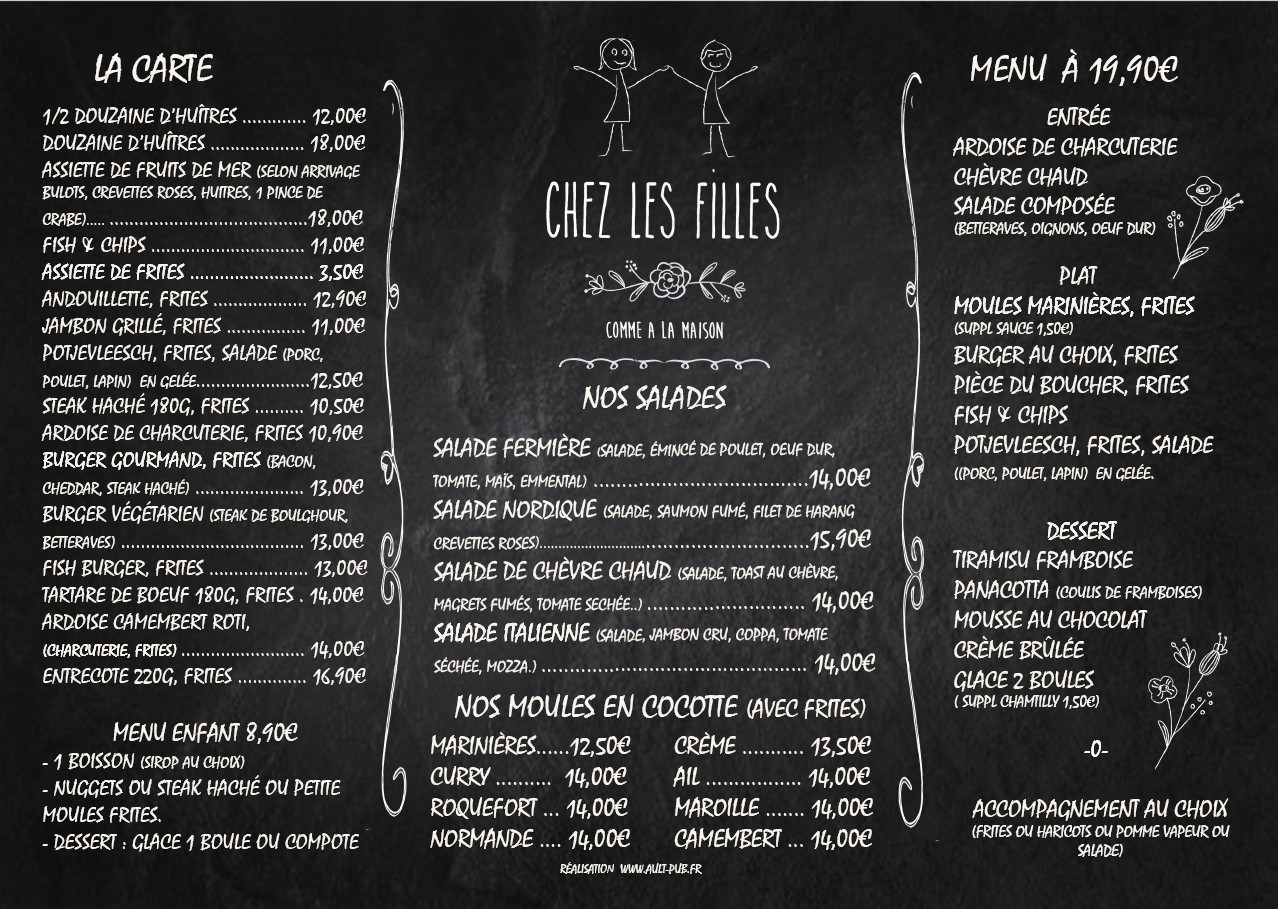 LA CARTE
1/2 DOUZAINE D'HUÎTRES ............. 12,00€
DOUZAINE D'HUÎTRES .................... 18,00€
ASSIETTE DE FRUITS DE MER (SELON ARRIVAGE
BULOTS, CREVETTES ROSES, HUITRES, 1 PINCE DE
CRABE)..... ..........................................18,00€
FISH & CHIPS ................................. 11,00€
ASSIETTE DE FRITES ......................... 3,50€
ANDOUILLETTE, FRITES .................... 12,90€
JAMBON GRILLÉ, FRITES ................ 11,00€
POTJEVLEESCH, FRITES, SALADE (PORC,
POULET, LAPIN) EN GELÉE.......................12,50€
STEAK HACHÉ 180G, FRITES .......... 10,50€
ARDOISE DE CHARCUTERIE, FRITES 10,90€
BURGER GOURMAND, FRITES (BACON,
CHEDDAR, STEAK HACHÉ) ...................... 13,00€
BURGER VÉGÉTARIEN (STEAK DE BOULGHOUR,
BETTERAVES) ...................................... 13,00€
FISH BURGER, FRITES .................... 13,00€
TARTARE DE BOEUF 180G, FRITES . 14,00€
ARDOISE CAMEMBERT ROTI,
(CHARCUTERIE, FRITES) ......................... 14,00€
ENTRECOTE 220G, FRITES .............. 16,90€
MENU ENFANT 8,90€
- 1 BOISSON (SIROP AU CHOIX)
- NUGGETS OU STEAK HACHÉ OU PETITE
MOULES FRITES.
- DESSERT : GLACE 1 BOULE OU COMPOTE
CHEZ LES FILLES
COMME A LA MAISON
NOS SALADES
SALADE FERMIÈRE (SALADE, ÉMINCÉ DE POULET, OEUF DUR,
TOMATE, MAÏS, EMMENTAL) ........................................14,00€
SALADE NORDIQUE (SALADE, SAUMON FUMÉ, FILET DE HARANG
CREVETTES ROSES)..........................................................15,90€
SALADE DE CHÈVRE CHAUD (SALADE, TOAST AU CHÈVRE,
MAGRETS FUMÉS, TOMATE SECHÉE..) ............................. 14,00€
SALADE ITALIENNE (SALADE, JAMBON CRU, COPPA, TOMATE
SÉCHÉE, MOZZA.) .................................................. 14,00€
NOS MOULES EN COCOTTE (AVEC FRITES)
MARINIÈRES......12,50€
CURRY .......... 14,00€
ROQUEFORT ... 14,00€
NORMANDE .... 14,00€
CRÈME ........... 13,50€
AIL ................. 14,00€
MAROILLE ....... 14,00€
CAMEMBERT ... 14,00€
RÉALISATION WWW.AULT-PUB.FR
MENU À 19,90€
ENTRÉE
ARDOISE DE CHARCUTERIE
CHÈVRE CHAUD
SALADE COMPOSÉE
(BETTERAVES, OIGNONS, OEUF DUR)
PLAT
MOULES MARINIÈRES, FRITES
(SUPPL SAUCE 1,50€)
BURGER AU CHOIX, FRITES
PIÈCE DU BOUCHER, FRITES
FISH & CHIPS
POTJEVLEESCH, FRITES, SALADE
((PORC, POULET, LAPIN) EN GELÉE.
DESSERT
TIRAMISU FRAMBOISE
PANACOTTA (COULIS DE FRAMBOISES)
MOUSSE AU CHOCOLAT
CRÈME BRÛLÉE
GLACE 2 BOULES
( SUPPL CHAMTILLY 1,50€)
-O-
ACCOMPAGNEMENT AU CHOIX
(FRITES OU HARICOTS OU POMME VAPEUR OU
SALADE)